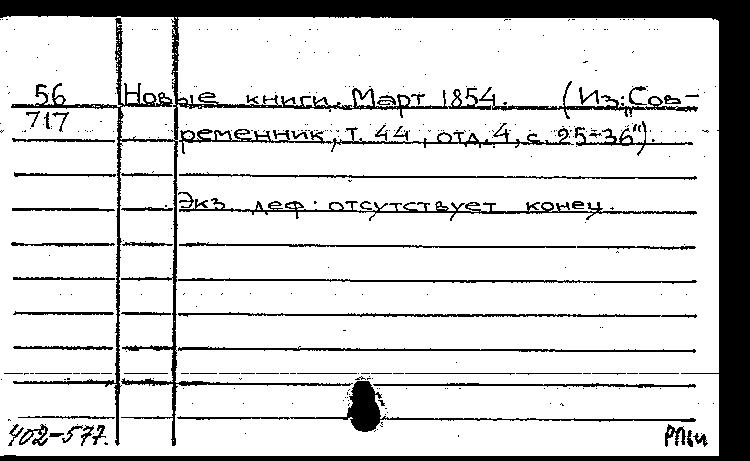 56 Новые книги. Март 1854. (Из: „Сов-
717 ременник", т. 44, отд. 4, с. 25-36").
Экз. деф: отсутствует конец.
402-577.